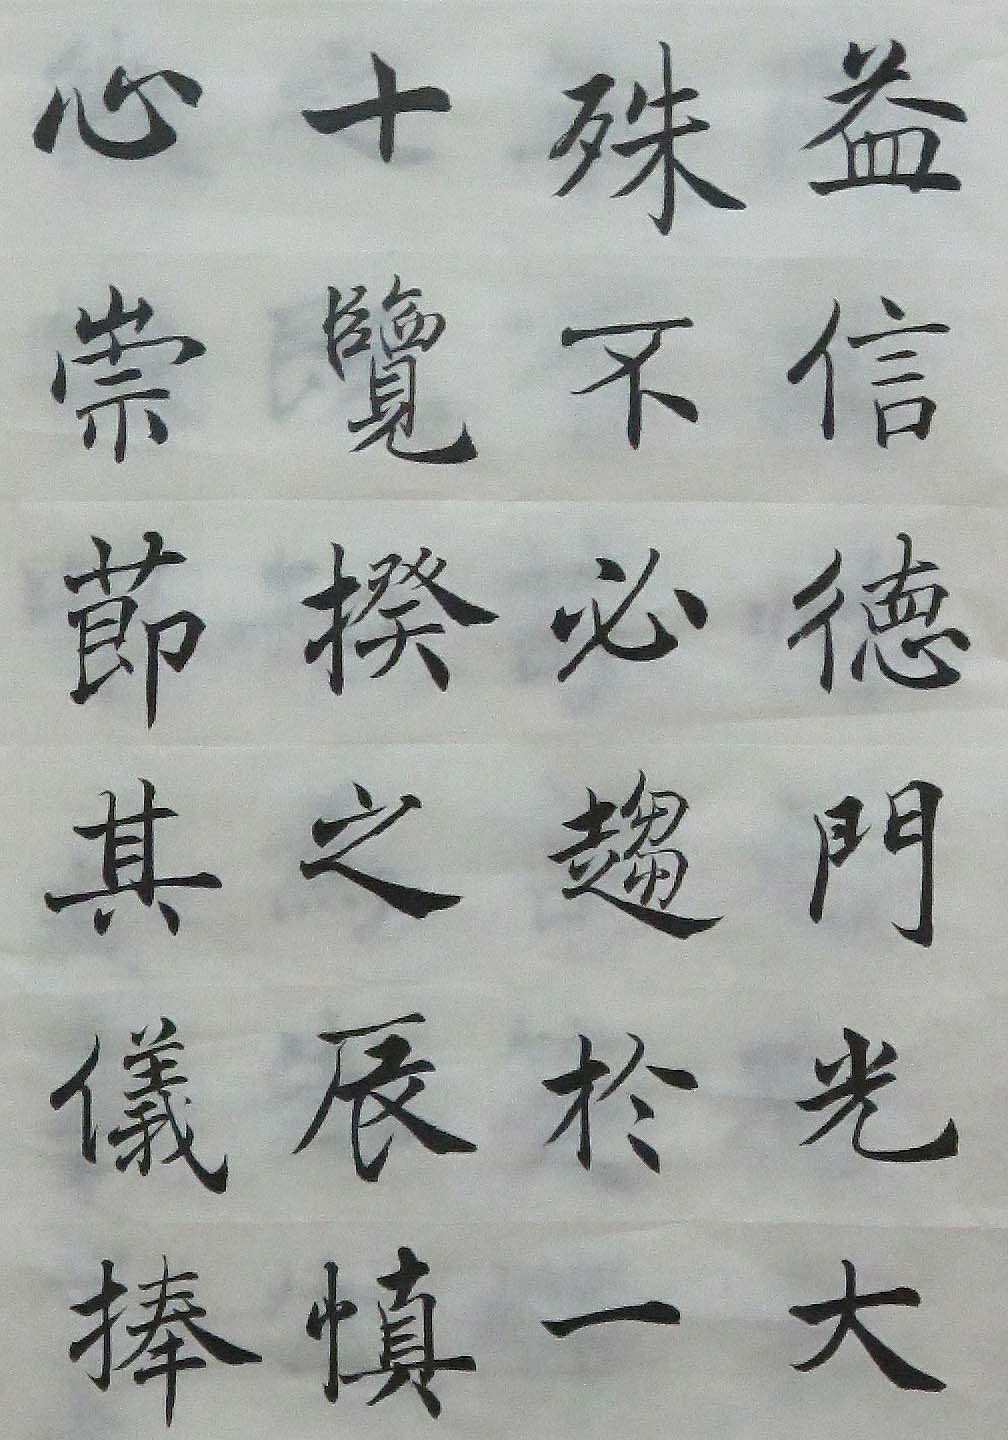 益信德門光大
殊不必趨於一
十覽揆之辰慎
心崇節其儀捧